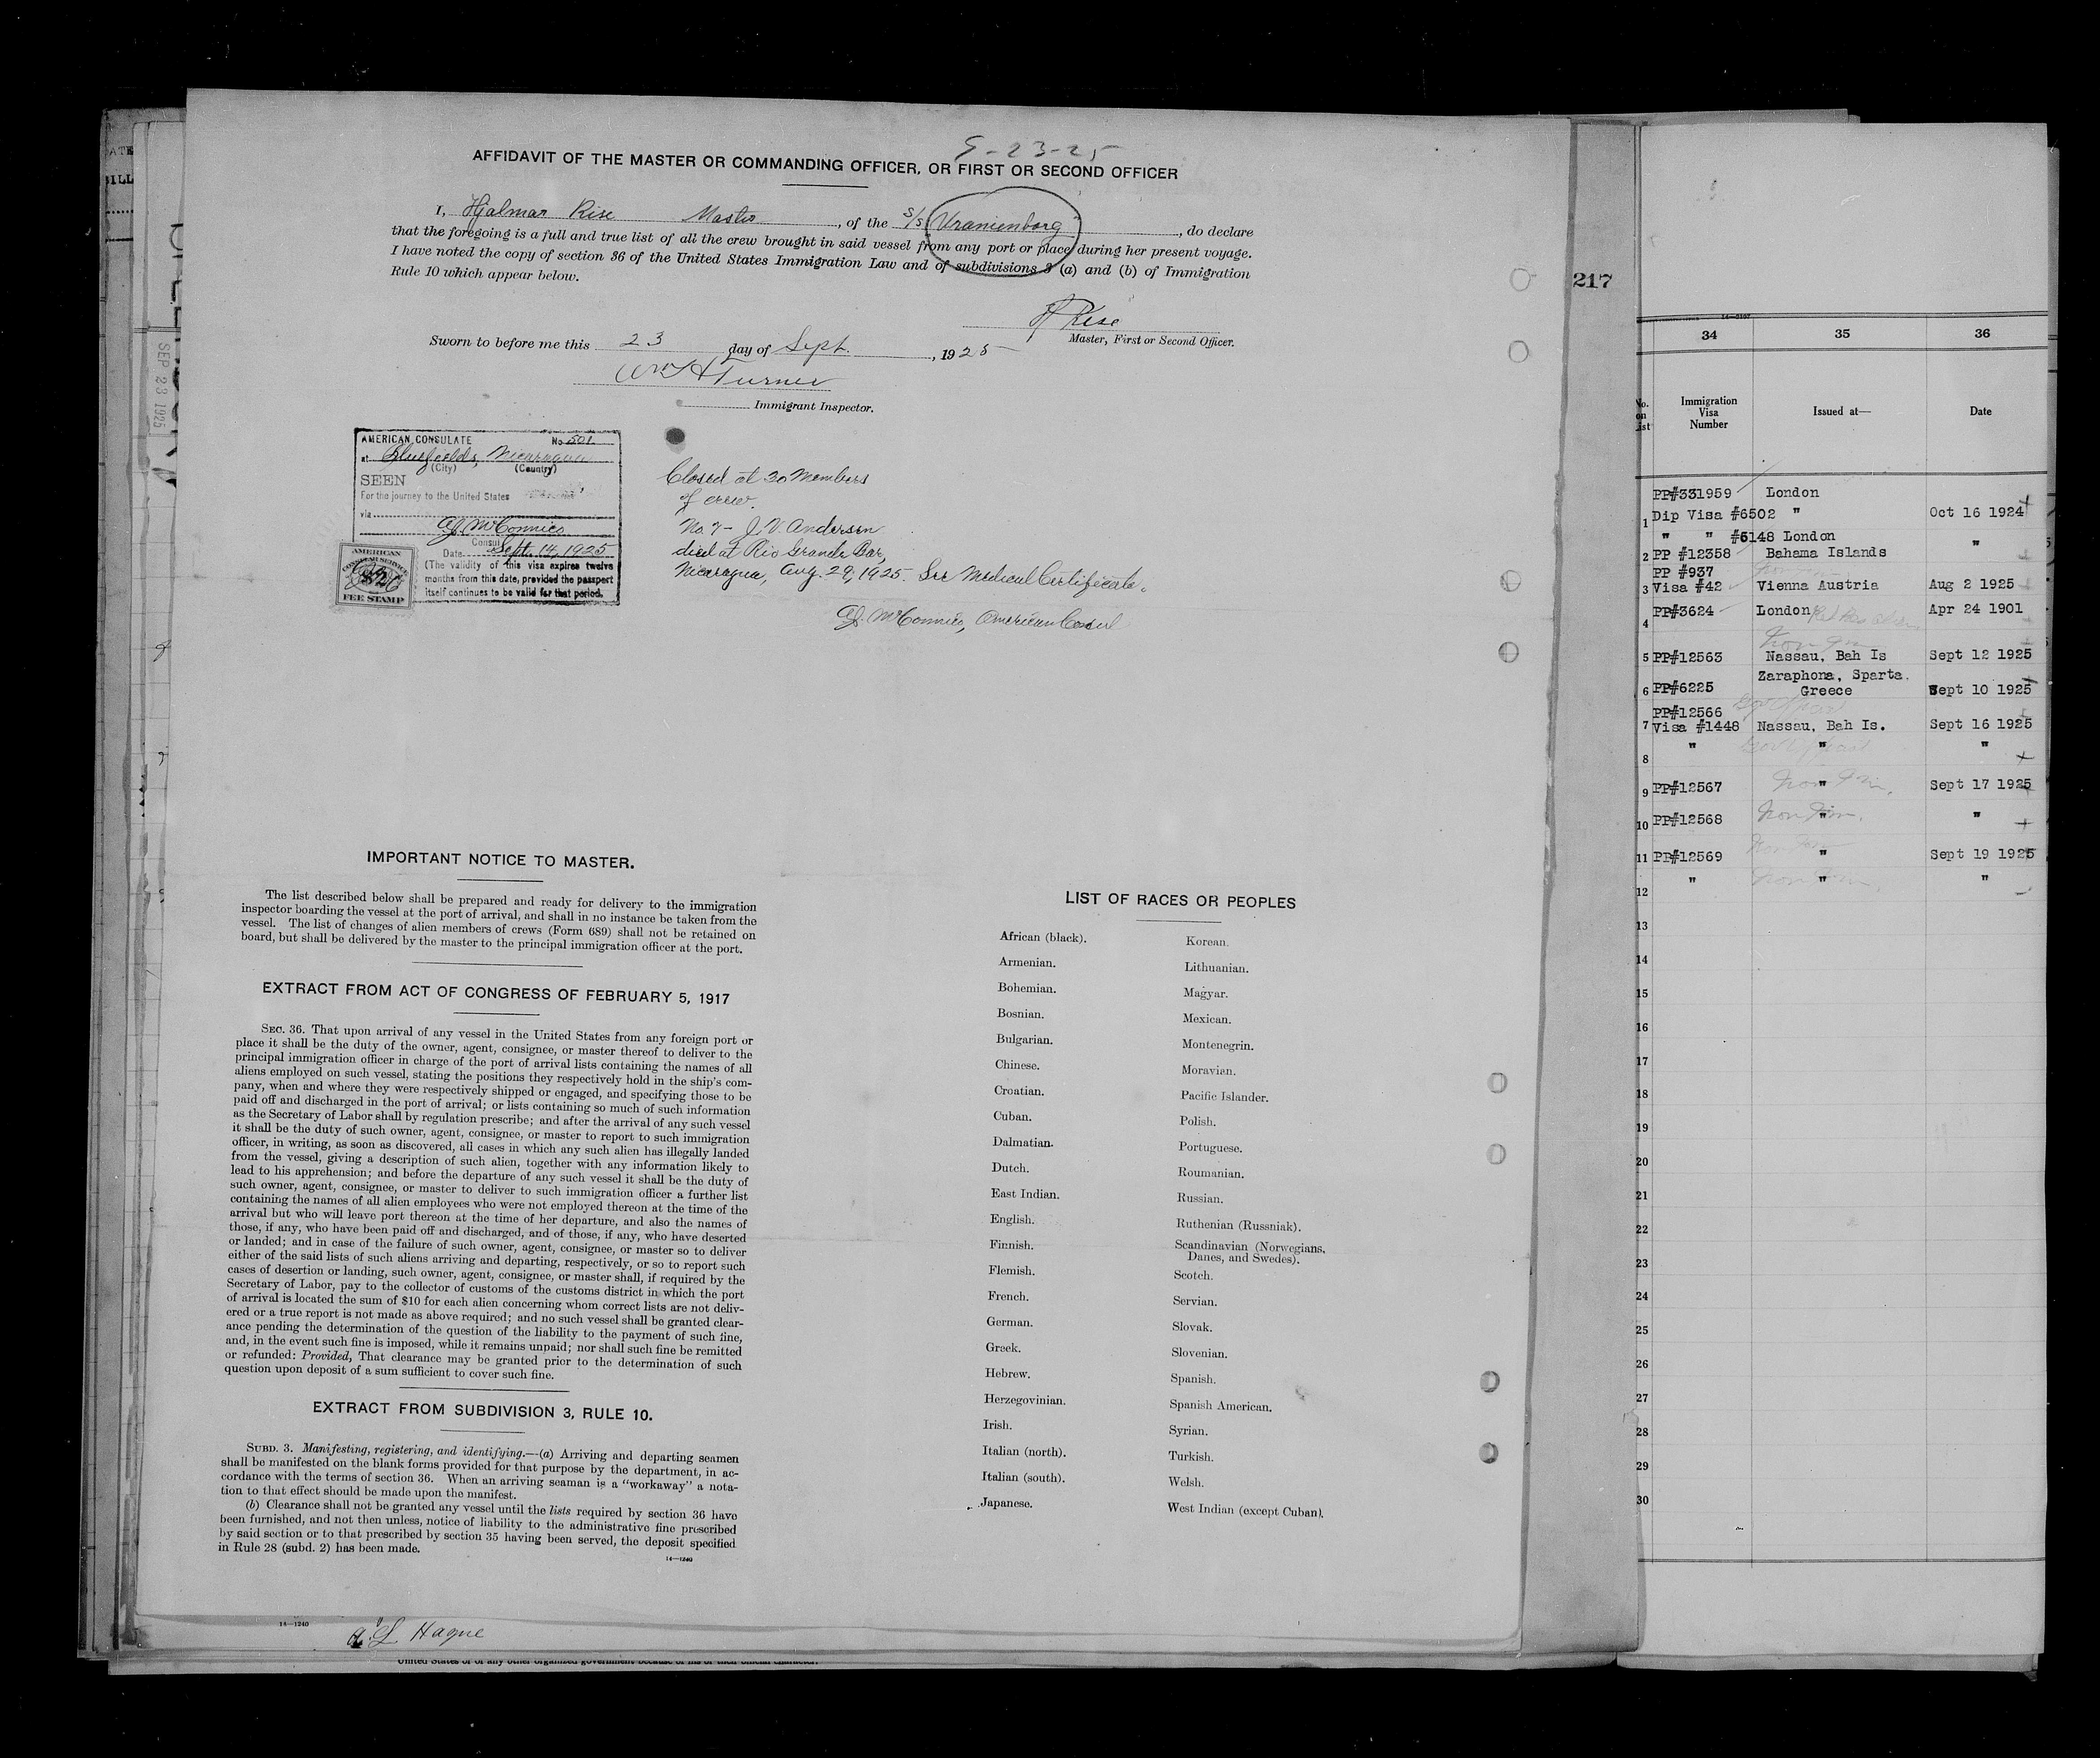 9-23-25
AFFIDAVIT OF THE MASTER OR COMMANDING OFFICER, OR FIRST OR SECOND OFFICER
I, Hjalmar Rise Master, of the S/S Uranienborg, do declare
that the foregoing is a full and true list of all the crew brought in said vessel from any port or place during her present voyage.
I have noted the copy of section 36 of the United States Immigration Law and of subdivisions 3 (a) and (b) of Immigration
Rule 10 which appear below.
H Rise
Master, First or Second Officer.
Sworn to before me this 23 day of Sept., 1925
Wm H Turner
Immigrant Inspector.
AMERICAN CONSULATE No 501
at Bluefields, Nicaragua
(City) (Country)
SEEN
For the journey to the United States
via
A.J. McConnico
Consul
Date Sept. 14, 1925
(The validity of this visa expires twelve
months from this date, provided the passport
itself continues to be valid for that period.
AMERICAN
CONSULAR SERVICE
FEE STAMP
Closed at 30 Members
of crew.
No. 7- J. V. Andersen
died at Rio Grande Bar,
Nicaragua, Aug. 29, 1925. See Medical Certificate.
A.J. McConnico, American Consul
IMPORTANT NOTICE TO MASTER.
The list described below shall be prepared and ready for delivery to the immigration
inspector boarding the vessel at the port of arrival, and shall in no instance be taken from the
vessel. The list of changes of alien members of crews (Form 689) shall not be retained on
board, but shall be delivered by the master to the principal immigration officer at the port.
EXTRACT FROM ACT OF CONGRESS OF FEBRUARY 5, 1917
SEC. 36. That upon arrival of any vessel in the United States from any foreign port or
place it shall be the duty of the owner, agent, consignee, or master thereof to deliver to the
principal immigration officer in charge of the port of arrival lists containing the names of all
aliens employed on such vessel, stating the positions they respectively hold in the ship's com-
pany, when and where they were respectively shipped or engaged, and specifying those to be
paid off and discharged in the port of arrival; or lists containing so much of such information
as the Secretary of Labor shall by regulation prescribe; and after the arrival of any such vessel
it shall be the duty of such owner, agent, consignee, or master to report to such immigration
officer, in writing, as soon as discovered, all cases in which any such alien has illegally landed
from the vessel, giving a description of such alien, together with any information likely to
lead to his apprehension; and before the departure of any such vessel it shall be the duty of
such owner, agent, consignee, or master to deliver to such immigration officer a further list
containing the names of all alien employees who were not employed thereon at the time of the
arrival but who will leave port thereon at the time of her departure, and also the names of
those, if any, who have been paid off and discharged, and of those, if any, who have deserted
or landed; and in case of the failure of such owner, agent, consignee, or master so to deliver
either of the said lists of such aliens arriving and departing, respectively, or so to report such
cases of desertion or landing, such owner, agent, consignee, or master shall, if required by the
Secretary of Labor, pay to the collector of customs of the customs district in which the port
of arrival is located the sum of $10 for each alien concerning whom correct lists are not deliv-
ered or a true report is not made as above required; and no such vessel shall be granted clear-
ance pending the determination of the question of the liability to the payment of such fine,
and, in the event such fine is imposed, while it remains unpaid; nor shall such fine be remitted
or refunded: Provided, That clearance may be granted prior to the determination of such
question upon deposit of a sum sufficient to cover such fine.
EXTRACT FROM SUBDIVISION 3, RULE 10.
SUBD. 3. Manifesting, registering, and identifying.—(a) Arriving and departing seamen
shall be manifested on the blank forms provided for that purpose by the department, in ac-
cordance with the terms of section 36. When an arriving seaman is a "workaway" a nota-
tion to that effect should be made upon the manifest.
(b) Clearance shall not be granted any vessel until the lists required by section 36 have
been furnished, and not then unless, notice of liability to the administrative fine prescribed
by said section or to that prescribed by section 35 having been served, the deposit specified
in Rule 28 (subd. 2) has been made.
14—1240
LIST OF RACES OR PEOPLES
African (black).
Armenian.
Bohemian.
Bosnian.
Bulgarian.
Chinese.
Croatian.
Cuban.
Dalmatian.
Dutch.
East Indian.
English.
Finnish.
Flemish.
French.
German.
Greek.
Hebrew.
Herzegovinian.
Irish.
Italian (north).
Italian (south).
Japanese.
Korean.
Lithuanian.
Magyar.
Mexican.
Montenegrin.
Moravian.
Pacific Islander.
Polish.
Portuguese.
Roumanian.
Russian.
Ruthenian (Russniak).
Scandinavian (Norwegians,
Danes, and Swedes).
Scotch.
Servian.
Slovak.
Slovenian.
Spanish.
Spanish American.
Syrian.
Turkish.
Welsh.
West Indian (except Cuban).
14—1240
A. L. Hague
United States or of any other organized government because of his or their official character.
SEP 23 1925
217
34 35 36
No. on List
Immigration Visa Number
Issued at—
Date
PP#331959 London
1 Dip Visa #6502 " Oct 16 1924
" " #6148 London
2 PP #12358 Bahama Islands "
PP #937
3 Visa #42 Vienna Austria Aug 2 1925
4 PP#3624 London Apr 24 1901
5 PP#12563 Nassau, Bah Is Sept 12 1925
Zaraphona, Sparta,
6 PP#6225 Greece Sept 10 1925
PP#12566
7 Visa #1448 Nassau, Bah Is. Sept 16 1925
8 " " "
9 PP#12567 " Sept 17 1925
10 PP#12568 " "
11 PP#12569 " Sept 19 1925
12 " " "
13
14
15
16
17
18
19
20
21
22
23
24
25
26
27
28
29
30